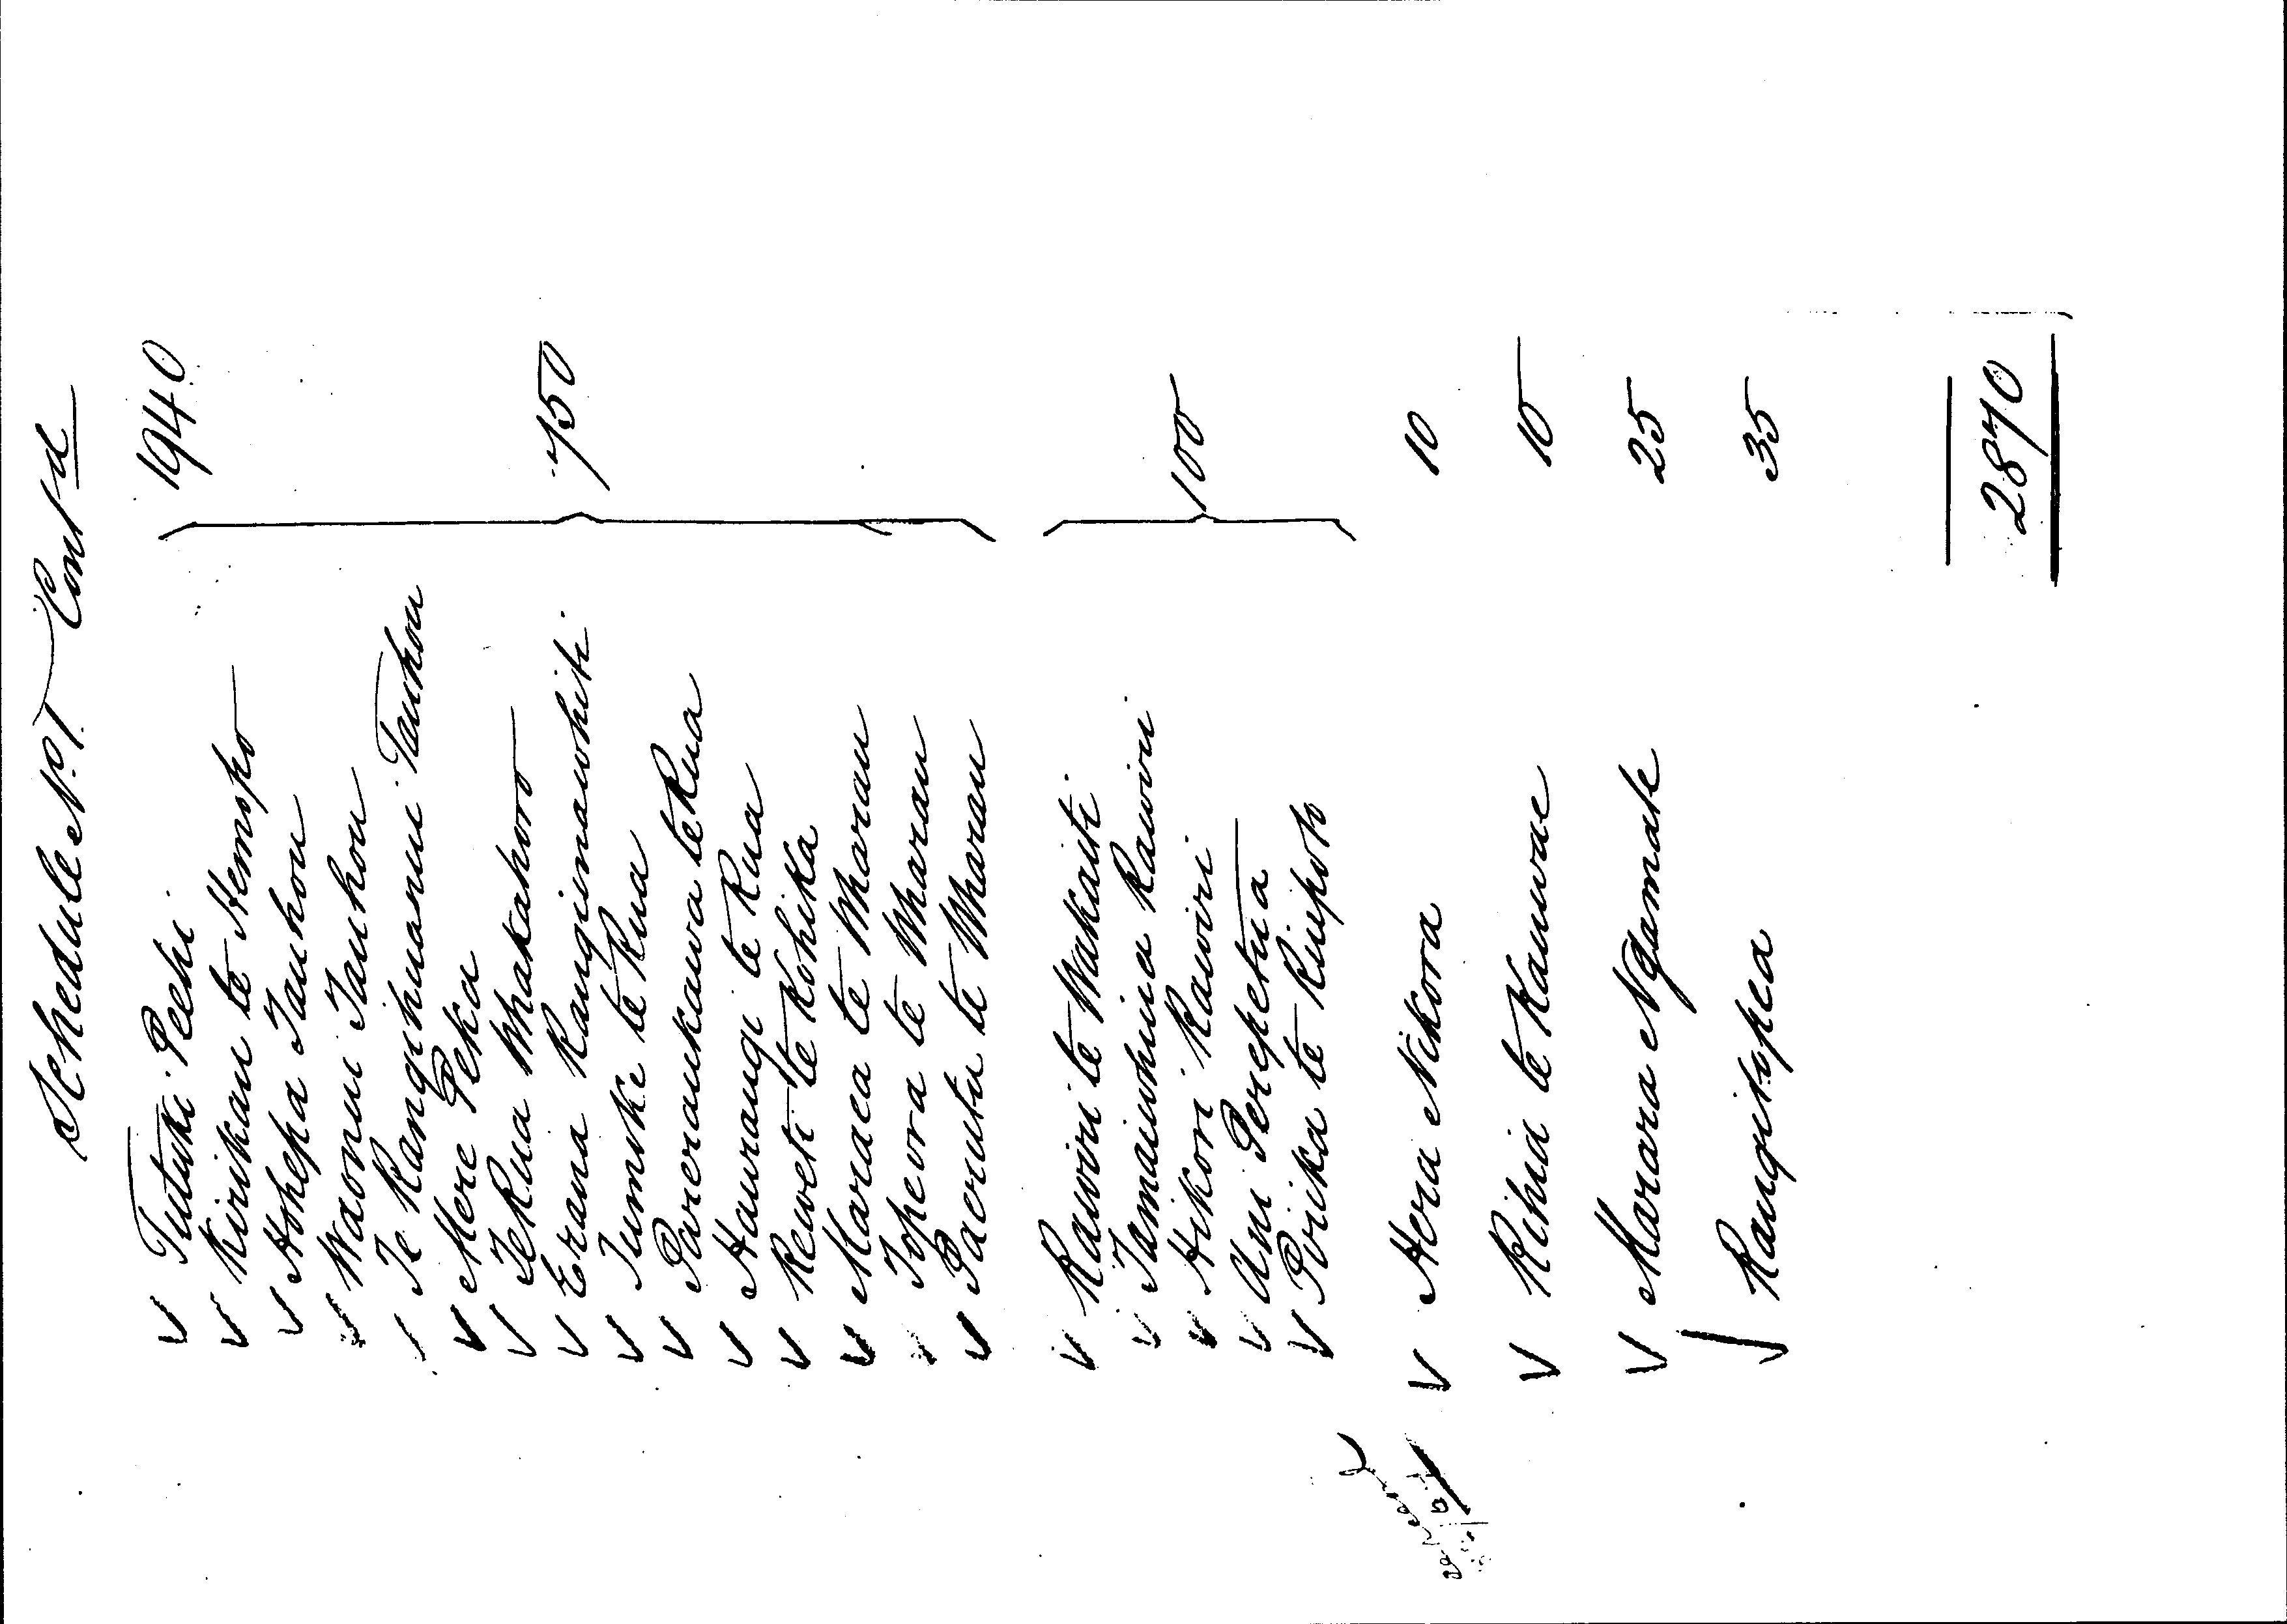 Schedule No. 1 Contd
1940
✓ Tutaki Peehi
✓ Kirikau te Hemopo
✓ Hohepa Tauhou
✓ Waonui Tauhou
✓ Te Ranginuanui Tauhou
✓ Mere Peka
✓ Te Rua Whakahoro
✓ Erana Rangimawhiti 750
✓ Tumoke te Rua
✓ Pareraukawa te Rua
✓ Haurangi te Rua
✓ Reweti te Kohika
✓ Maraea te Wharau
✓ Toheora te Wharau
✓ Paerutu te Wharau
✓ Rawiri te Wakaiti
✓ Tamaiwhiua Rawiri
✓ Hikori Rawiri 100
✓ Ani Perepetua
✓ Pirika te Ruipoto
✓ Hera Nikora 10
✓ Rihia te Kauwae 10
✓ Marara Ngamate 25
✓ Rangitopea 35
2870